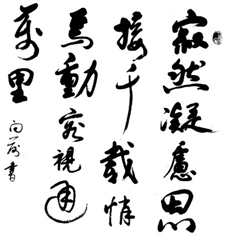 寂然凝慮思
接千載悄
焉動容視通
萬里
書